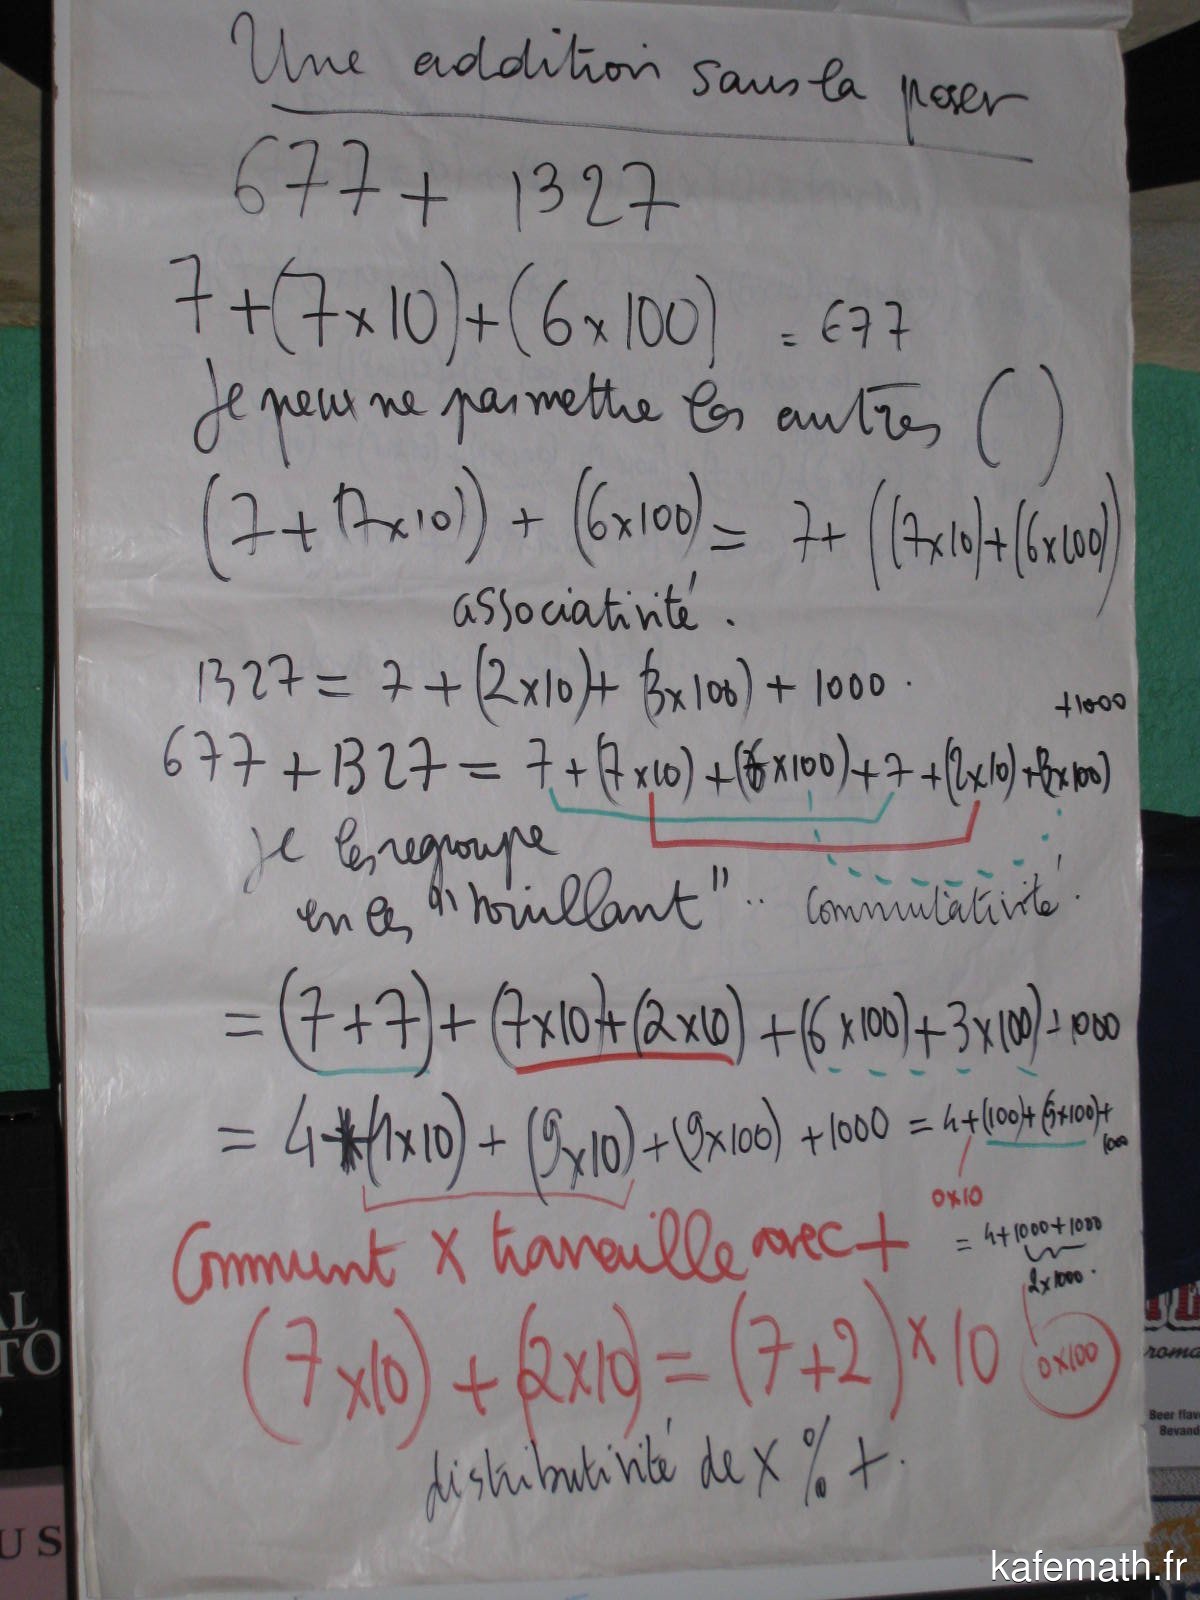 Une addition sans la poser
677 + 1327
7 + (7 x 10) + (6 x 100) = 677
Je peux ne pas mettre les autres ( )
(7 + (7x10)) + (6x100) = 7+ ((7x10)+(6x100))
associativité.
1327 = 7 + (2x10) + (3x100) + 1000.
+1000
677 + 1327 = 7 + (7x10) + (6x100) + 7 + (2x10) + (3x100)
je les regroupe
en les "brouillant" .. Commutativité.
= (7+7) + (7x10)+(2x10) + (6x100)+3x100)+1000
= 4+(1x10) + (9x10) + (9x100) + 1000 = 4+(100)+(9x100)+
1000
0x10
Comment x travaille avec +
= 4+1000+1000
2x1000.
(7x10) + (2x10) = (7+2) x 10
0x100
distributivité de x % +.
AL
TO
US
roma
Beer flav
Bevand
kafemath.fr